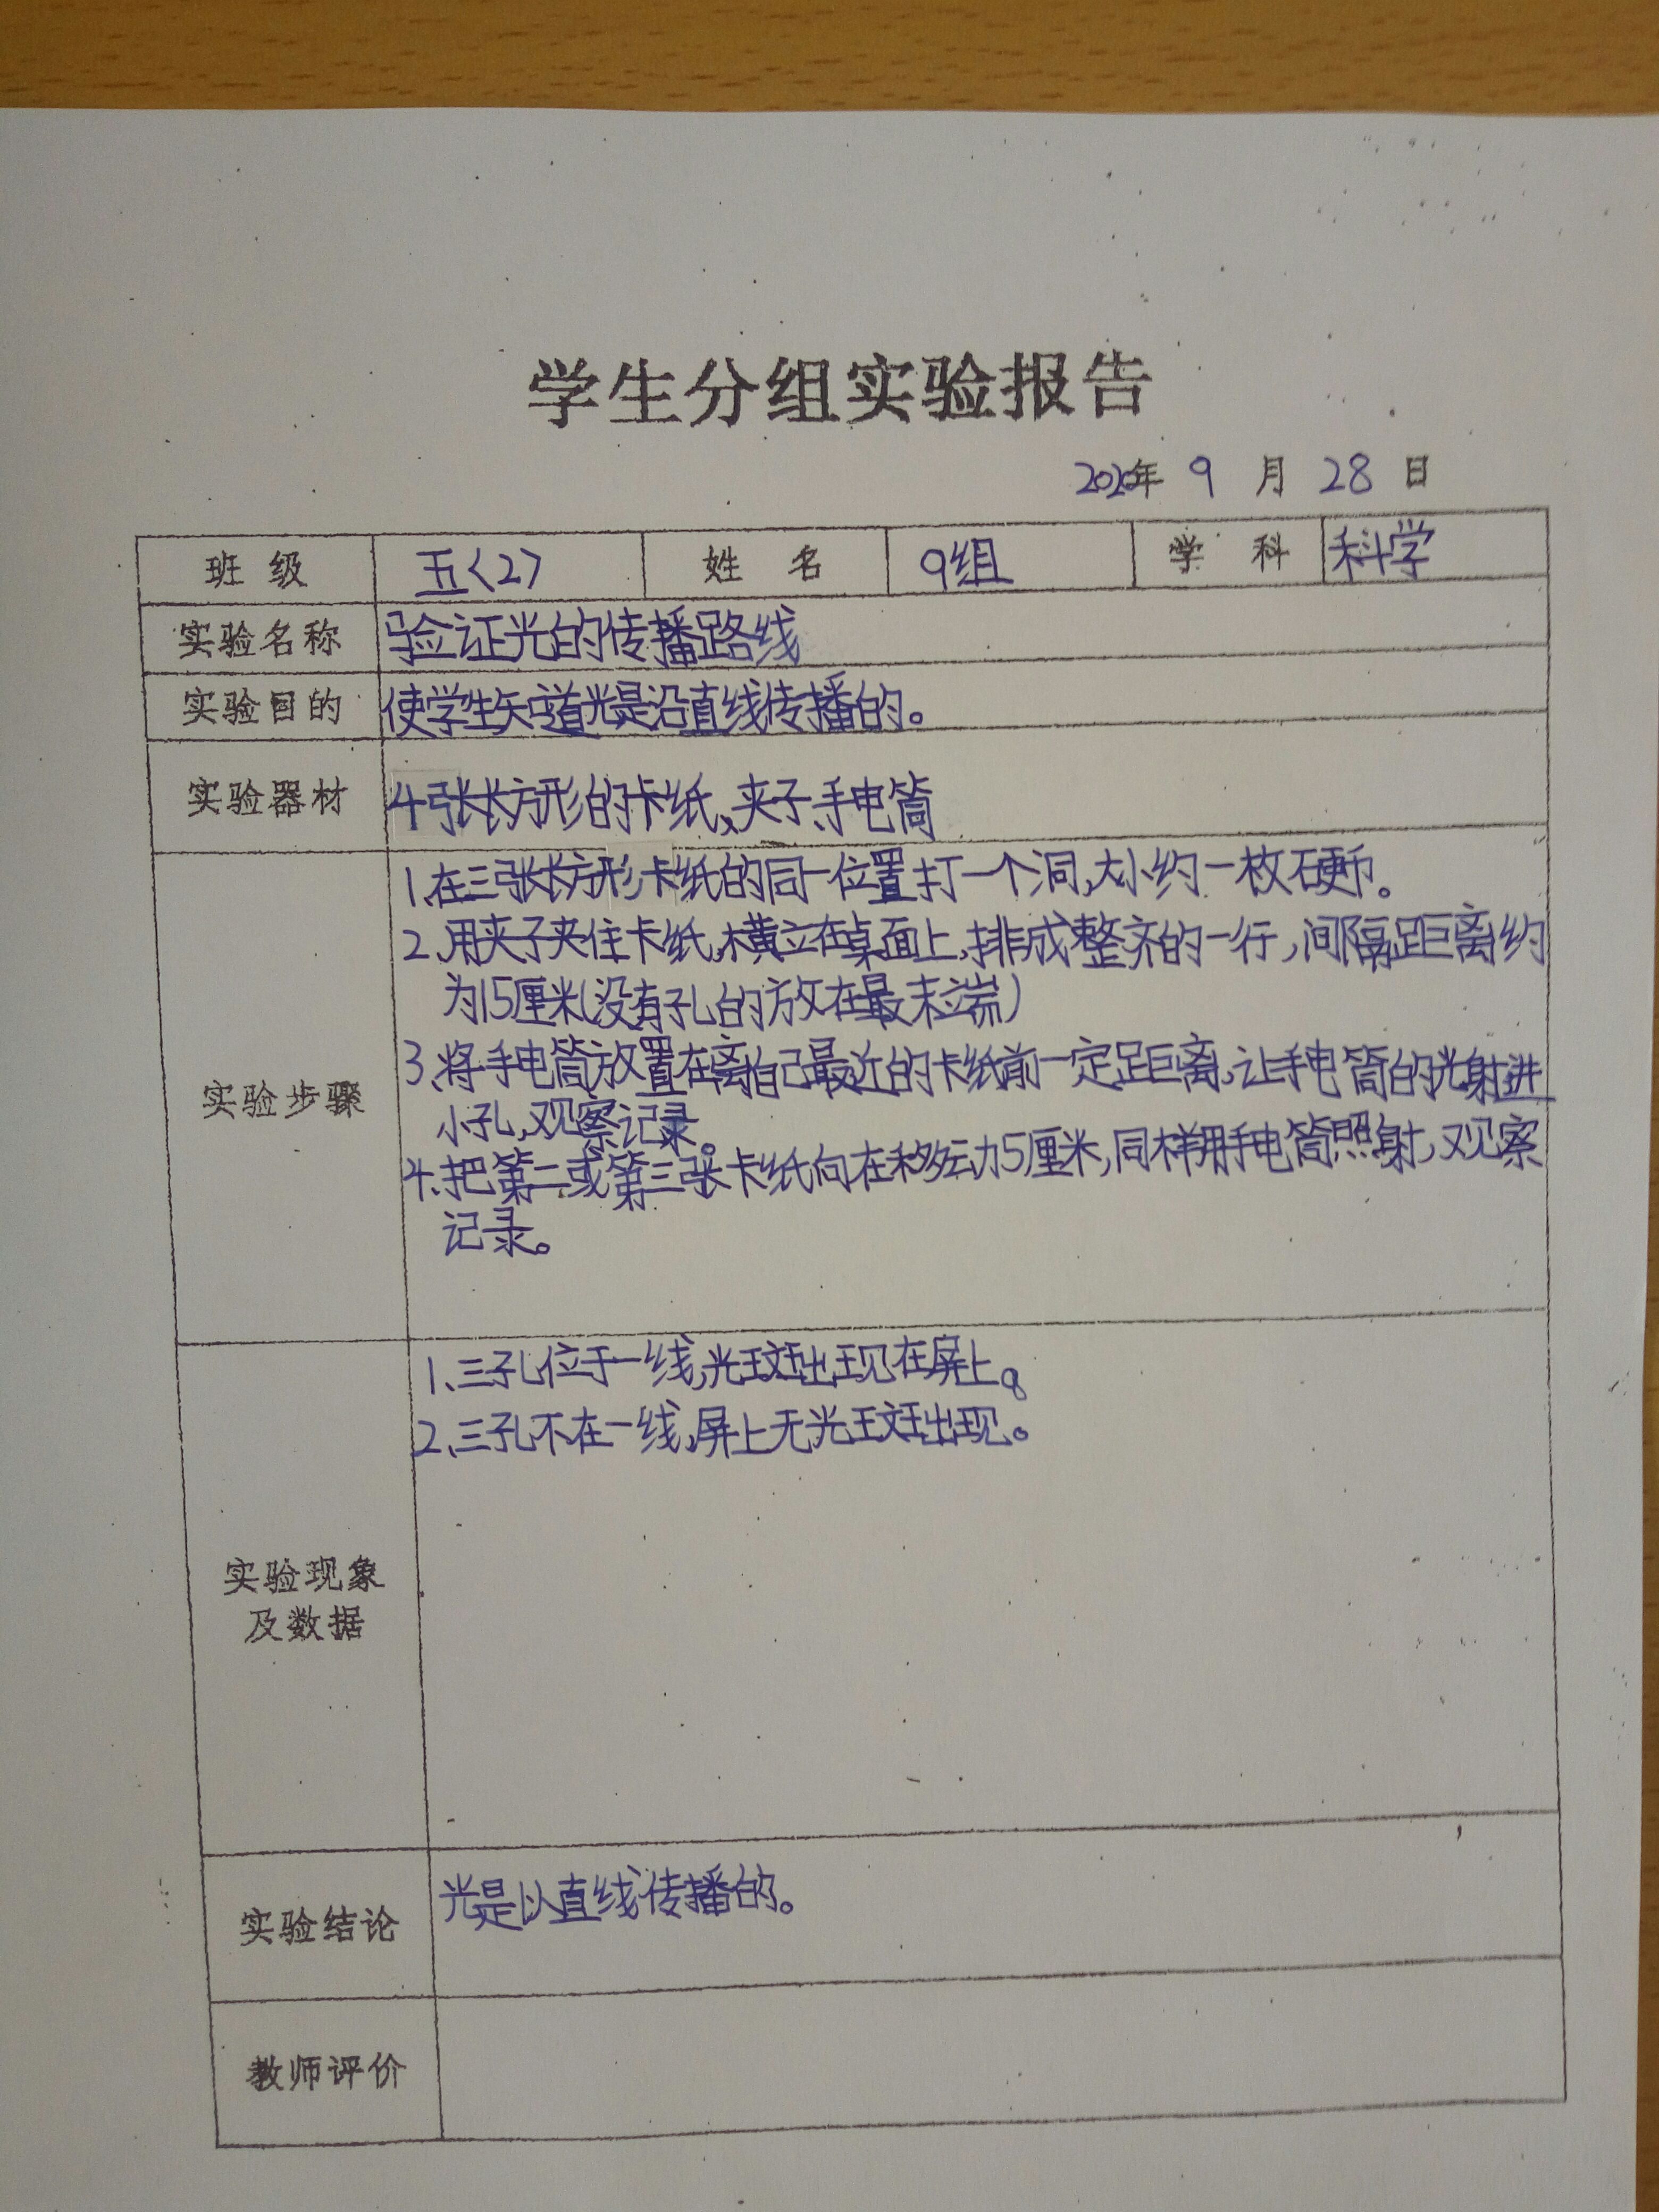 学生分组实验报告
2020年 9 月 28 日
班 级 五<2> 姓 名 9组 学 科 科学
实验名称 验证光的传播路线
实验目的 使学生知道光是沿直线传播的。
实验器材 4张长方形的卡纸、夹子、手电筒
实验步骤
1、在三张长方形卡纸的同一位置打一个洞,大小约一枚硬币。
2、用夹子夹住卡纸,横立在桌面上,排成整齐的一行,间隔距离约
为15厘米(没有孔的放在最末端)
3、将手电筒放置在离自己最近的卡纸前一定距离,让手电筒的光射进
小孔,观察记录。
4、把第二或第三张卡纸向在移动5厘米,同样用手电筒照射,观察
记录。
实验现象
及数据
1、三孔位于一线,光斑出现在屏上。
2、三孔不在一线,屏上无光斑出现。
实验结论 光是以直线传播的。
教师评价